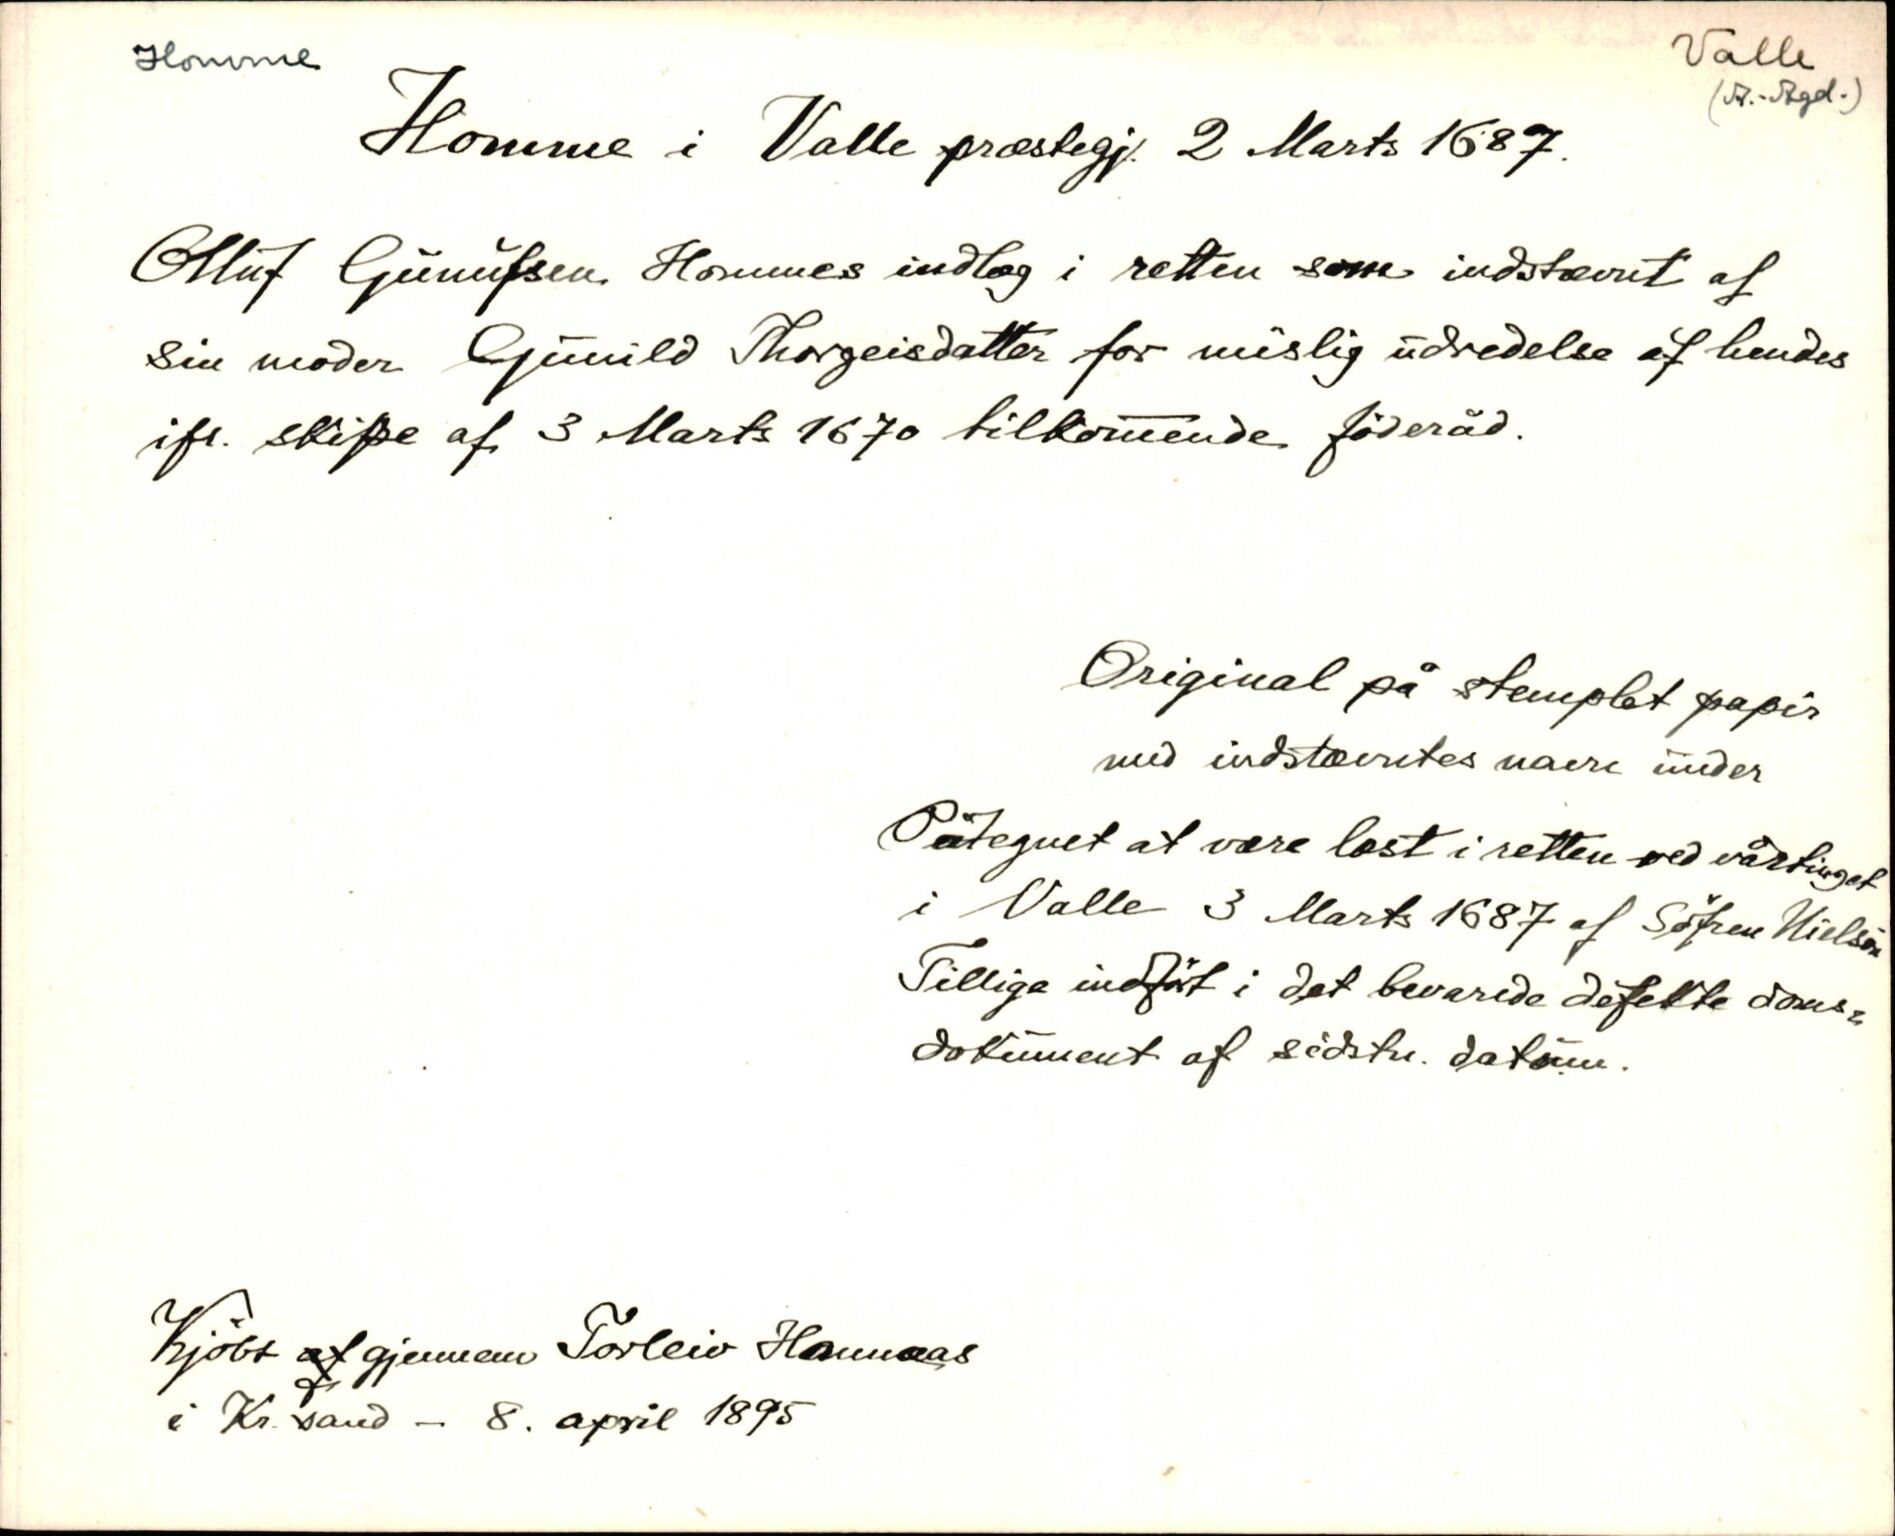 Homme
Valle
(A.-Agd.)
Homme i Valle præstegj. 2 Marts 1687.
Olluf Gunufsen Hommes indlæg i retten som indstævnt af
sin moder Gunild Thorgeisdatter for mislig udredelse af hendes
ifl. skifte af 3 Marts 1670 tilkom̅ende föderåd.
Original på stemplet papir
med indstævntes navn under
Påtegnet at være læst i retten ved vårtinget
i Valle 3 Marts 1687 af Söfren Nielsön
Tillige indført i det bevarede defekte doms-
dokument af sidstn. datum.
Kjöbt af gjennem Torleiv Hannaas
i Kr.sand – 8. april 1895